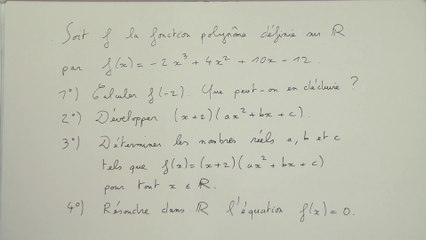 Soit f la fonction polynôme définie sur ℝ
par f(x) = -2x³ + 4x² + 10x - 12.
1°) Calculer f(-2). Que peut-on en déduire ?
2°) Développer (x+2)(ax² + bx + c).
3°) Déterminer les nombres réels a, b et c
tels que f(x) = (x+2)(ax² + bx + c)
pour tout x ∈ ℝ.
4°) Résoudre dans ℝ l'équation f(x) = 0.